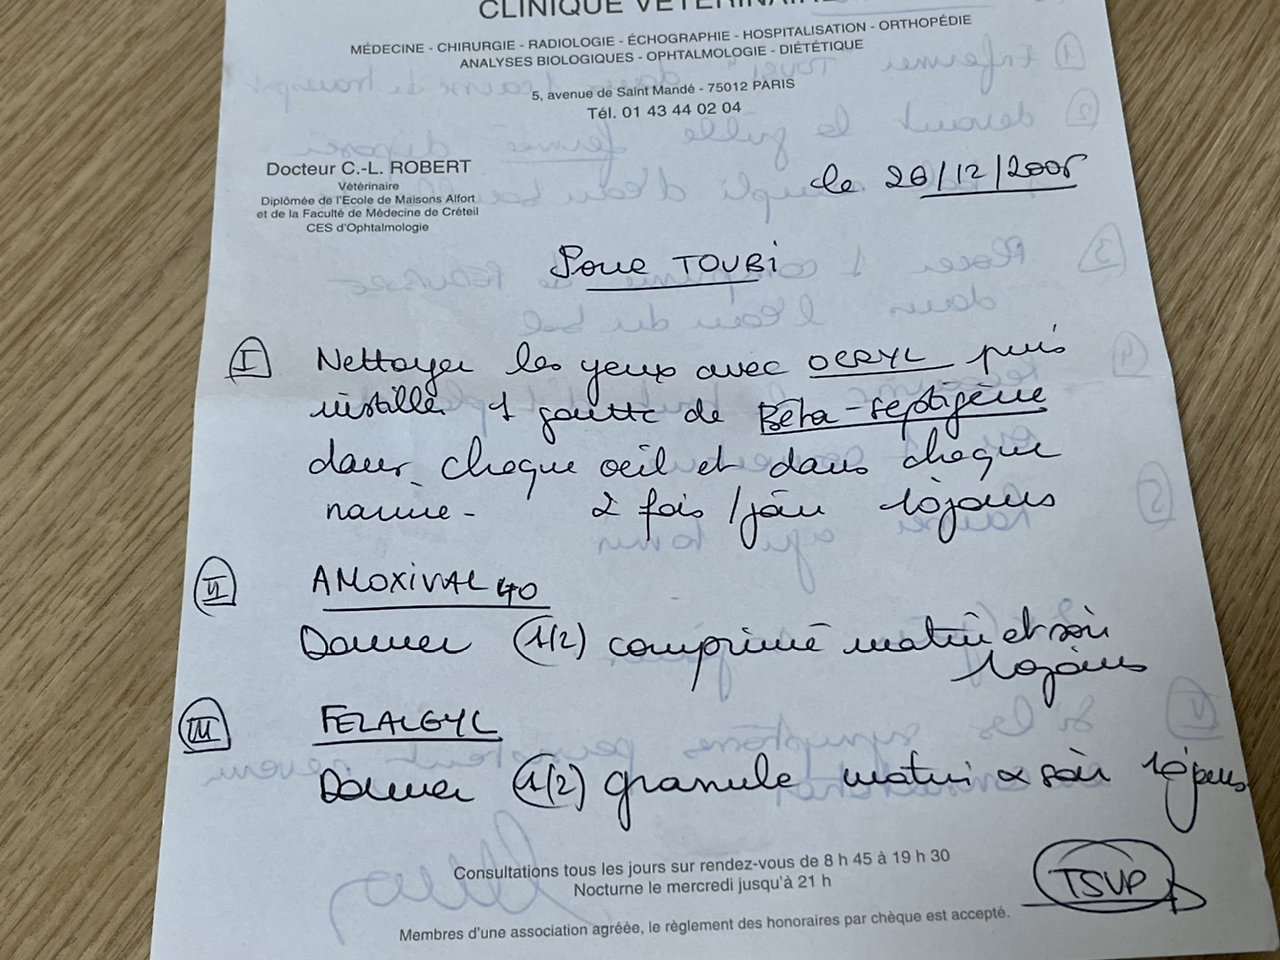 CLINIQUE VÉTÉRINAIRE
MÉDECINE - CHIRURGIE - RADIOLOGIE - ÉCHOGRAPHIE - HOSPITALISATION - ORTHOPÉDIE
ANALYSES BIOLOGIQUES - OPHTALMOLOGIE - DIÉTÉTIQUE
5, avenue de Saint Mandé - 75012 PARIS
Tél. 01 43 44 02 04
Docteur C.-L. ROBERT
Vétérinaire
Diplômée de l'Ecole de Maisons Alfort
et de la Faculté de Médecine de Créteil
CES d'Ophtalmologie
le 20/12/2005
Pour TOUBI
I Nettoyer les yeux avec OCRYL puis
instiller 1 goutte de Bêta-septigène
dans chaque oeil et dans chaque
narine - 2 fois/jour 10 jours
II AMOXIVAL 40
Donner (1/2) comprimé matin et soir
10 jours
III FELALGYL
Donner (1/2) granule matin & soir 10 jours
Consultations tous les jours sur rendez-vous de 8 h 45 à 19 h 30
Nocturne le mercredi jusqu'à 21 h
TSVP
Membres d'une association agréée, le règlement des honoraires par chèque est accepté.